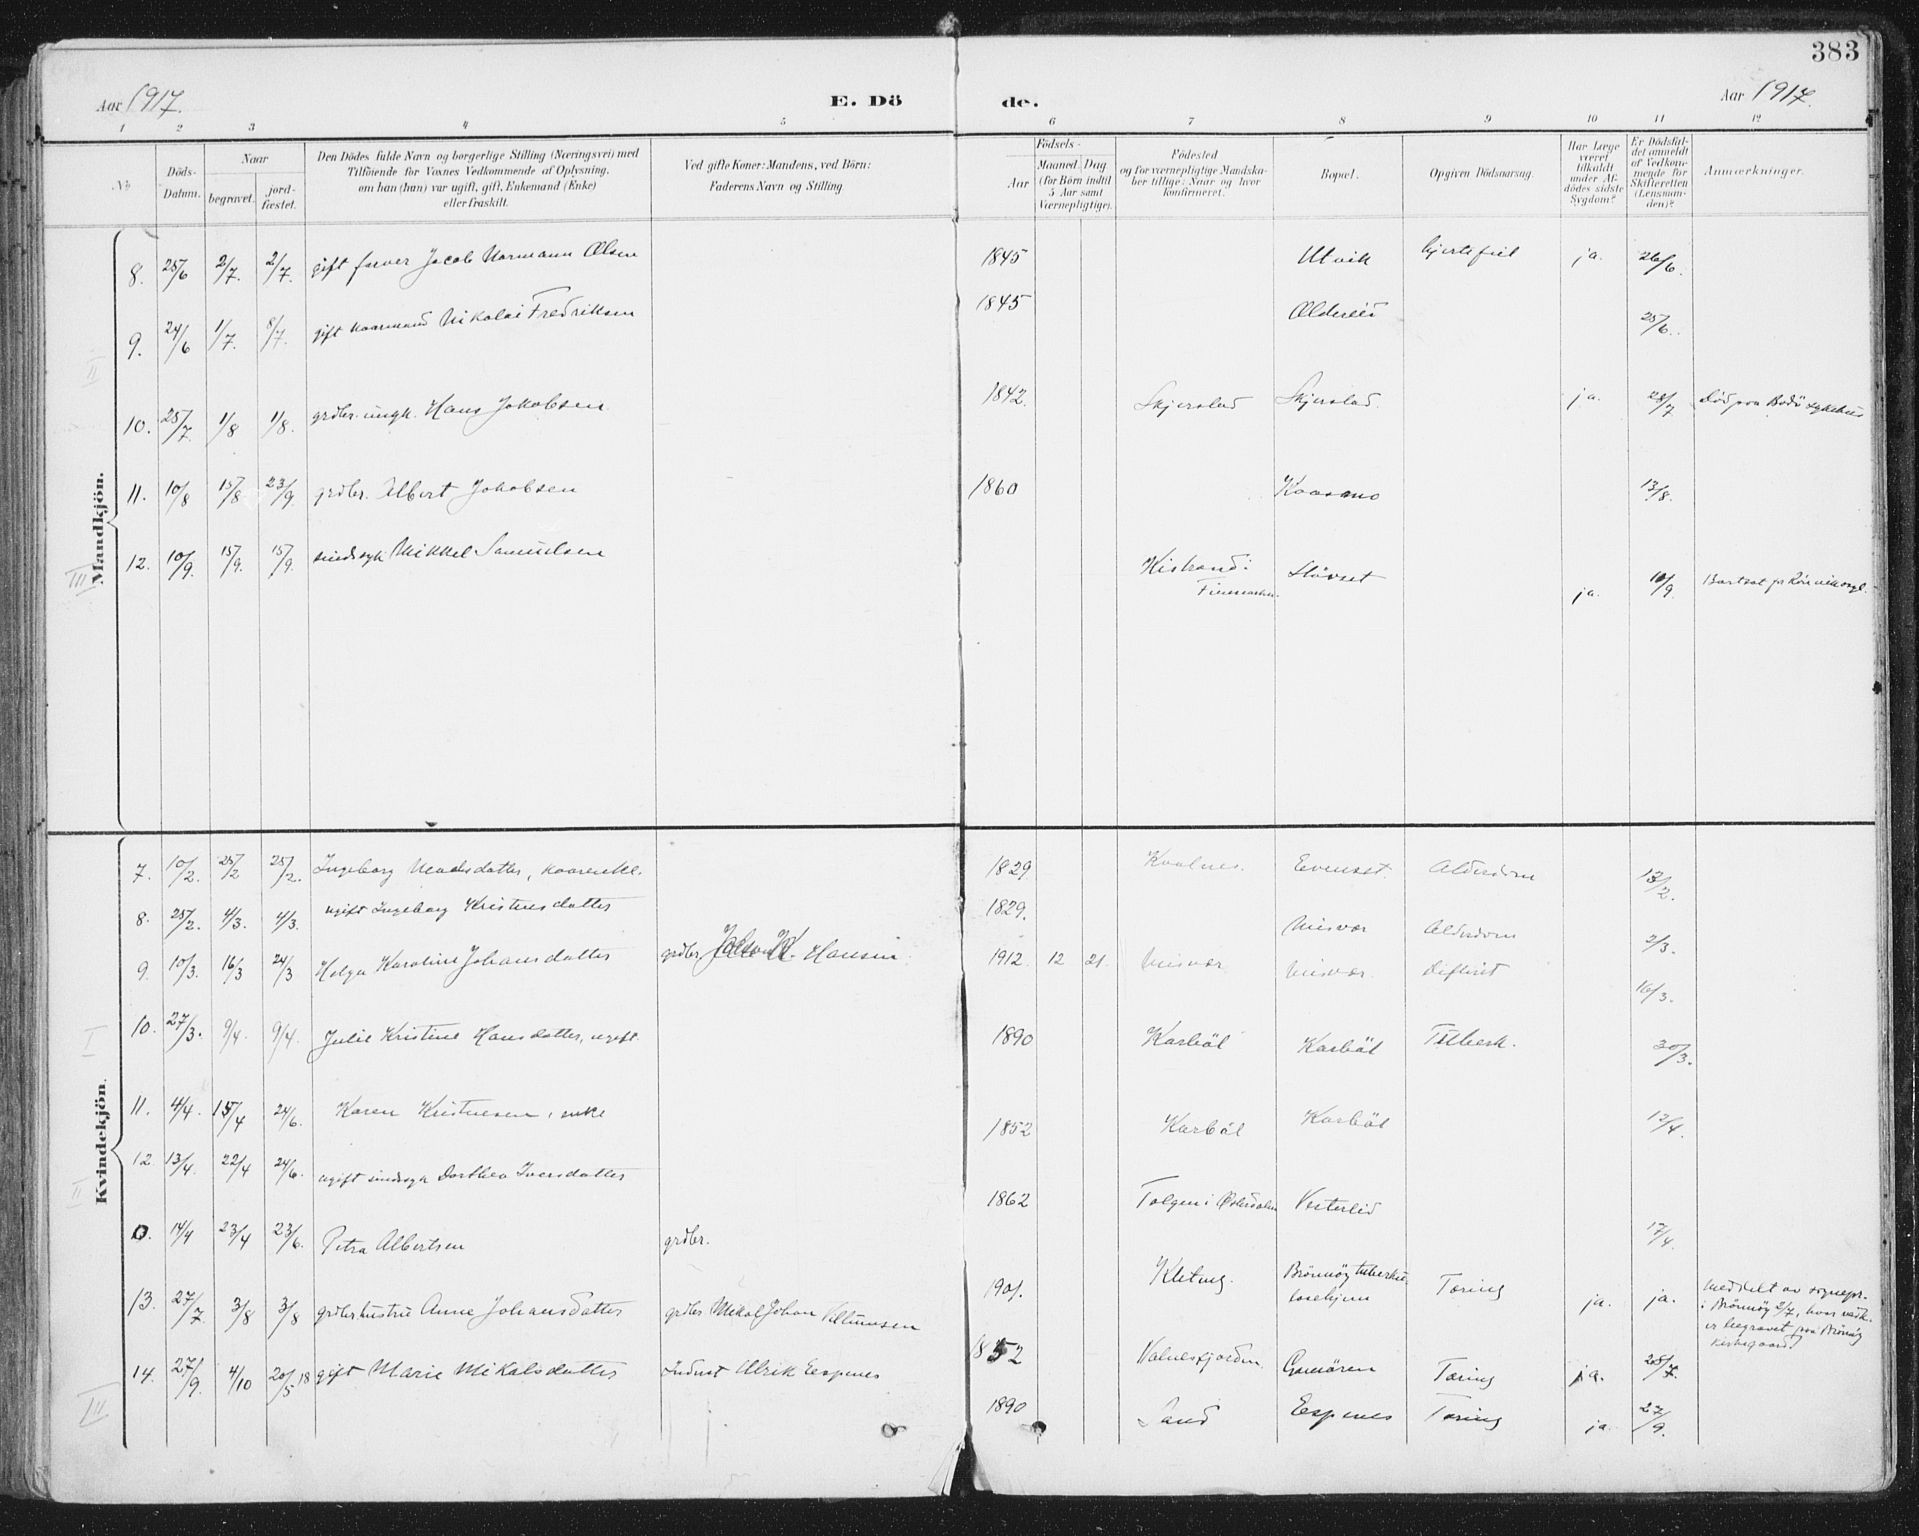 383
Aar 1917.
E. Dö de.
Aar 1917.
1 2 3 4 5 6 7 8 9 10 11 12
No.
Döds-Datum.
Naar
begravet.
jord-fæstet.
Den Dödes fulde Navn og borgerlige Stilling (Næringsvei) med
Tilföiende for Voxnes Vedkommende af Oplysning,
om han (hun) var ugift, gift, Enkemand (Enke)
eller fraskilt.
Ved gifte Koner: Mandens, ved Börn:
Faderens Navn og Stilling.
Födsels-
Aar
Maaned. Dag
(for Börn indtil
5 Aar samt
Værnepligtige).
Födested
og for værnepligtige Mandska-
ber tillige: Naar og hvor
konfirmeret.
Bopæl.
Opgiven Dödsaarsag.
Har Læge
været
tilkaldt
under Af-
dödes sidste
Sygdom?
Er Dödsfal-
det anmeldt
af Vedkom-
mende for
Skifteretten
(Lensman-
den)?
Anmærkninger.
Mandkjön.
8. 25/6 2/7. 2/7. gift farver Jacob Normann Olsen 1845 Utvik hjertefeil ja. 26/6.
9. 24/6 1/7. 8/7. gift kaarmand Nikolai Fredriksen 1845 Oldereid 25/6.
II
10. 25/7. 1/8 1/8. grdbr. ungk. Hans Jakobsen 1842. Skjerstad Skjerstad. ja. 28/7 Död paa Bodö sykehus
11. 10/8 15/8 23/9. grdbr. Albert Jakobsen 1860 Kaasmo 13/8.
III
12. 10/9. 15/9. 15/9. sindssyk Mikkel Samuelsen Kistrand i Finmarken Stövset ja. 10/9.
Kvindekjön.
7. 10/2. 25/2 25/2. Ingeborg Madsdatter, kaarenke. 1829 Kvalnes. Evenset. Alderdom 13/2.
8. 25/2. 4/3. 4/3. ugift Ingeborg Kristensdatter 1829. Misvær Alderdom 2/3.
9. 10/3. 16/3 24/3 Helga Karoline Johansdatter grdbr. Johan K. Hansen. 1912. 12 21. Misvær Misvær. Difterit 16/3.
I
10. 27/3. 9/4. 9/4. Julie Kristine Hansdatter, ugift. 1890 Karbøl Karbøl Tuberk. 30/3.
11. 4/4. 15/4 24/6. Karen Kristensen, enke 1852 Karbøl Karbøl 12/4.
II
12. 13/4. 22/4 24/6. ugift sindssyk Dorthea Iversdatter 1862 Tolgen i Østerdalen Vesterlid 17/4.
0. 14/4 23/4 23/6. Petra Albertsen grdbr. 1901. Kleting. Brönnöy tuberku-losehjem Tæring ja. ja. meddelt av sognepr. i Brönnöy 2/7, hvor vedk. er begravet paa Brönnöy kirkegaard
13. 27/7. 3/8 3/8 grdbr.hustru Anne Johansdatter grdbr. Mikal Johan 1852 Valnesfjorden. Tæring ja. 28/7.
III
14. 27/9. 4/10 20/5 18 gift Marie Mikalsdatter Indust Ulrik Espenes 1890 Sand Espenes Tæring ja. 27/9.